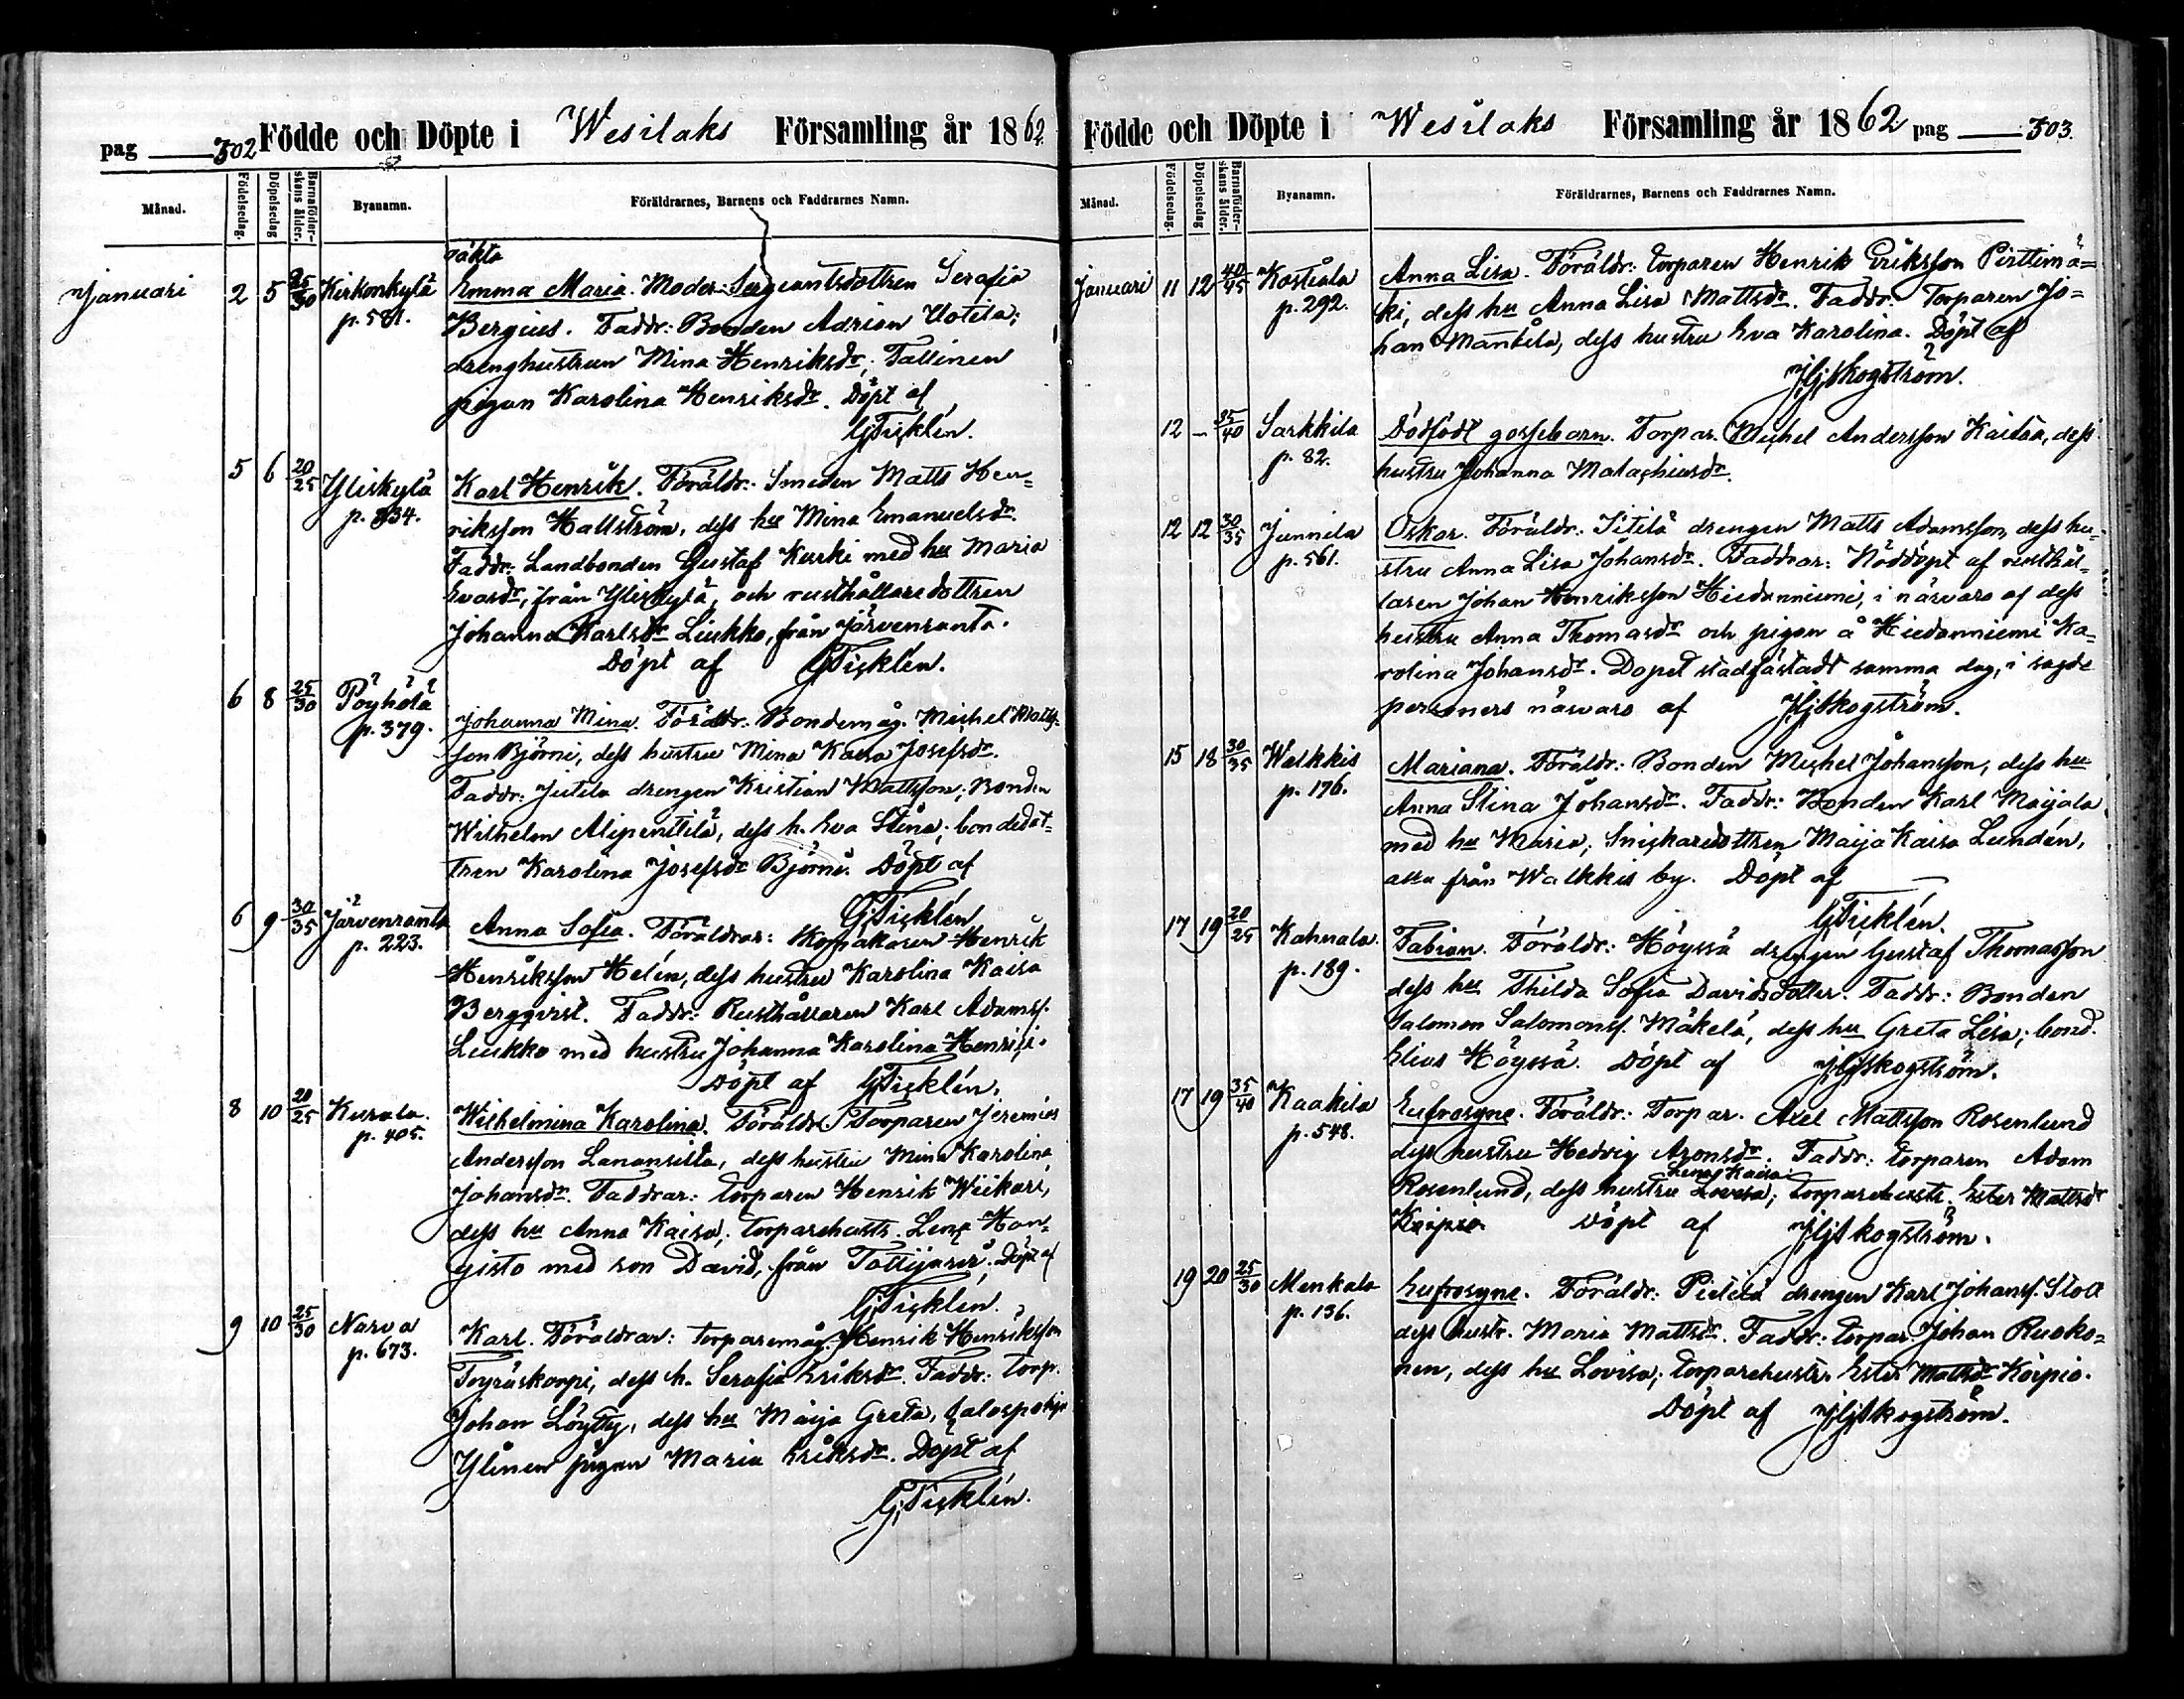 pag 502 Födde och Döpte i Wesilaks Församling år 1862.
Månad. Födelsedag. Döpelsedag Barnaföder-skans ålder. Byanamn. Föräldrarnes, Barnens och Faddrarnes Namn.
oäkta
Januari 2 5 25/30 Kirkonkylä Emma Maria. Moder: Sergeantsdottren Serafia
p. 581. Bergius. Faddr: Bonden Adrian Uotila;
drenghustrun Mina Henriksdr, Tallinen
pigan Karolina Henriksdr. Döpt af
G Ticklén.
5 6 20/25 Yliskylä Karl Henrik. Föräldr: Smeden Matts Hen-
p. 834. riksson Hallström, dess hu Mina Emanuelsdr.
Faddr: Landbonden Gustaf Kurki med hu Maria
Evasdr, från Yliskylä, och rusthållaredottren
Johanna Karlsdr Liukko, från Järvenranta.
Döpt af G Ticklén.
6 8 25/30 Pöyhölä Johanna Mina. Föräldr: Bondemåg. Michel Matts-
p. 379. son Björni, dess hustru Mina Kaisa Josefsdr.
Faddr: Jutila drengen Kristian Mattsson; Bonden
Wilhelm Alipenttilä, dess h. Eva Stina; bondedot-
tren Karolina Josefsdr Björni. Döpt af
G Ticklén
6 9 30/35 Järvenranta Anna Sofia. Föräldrar: Skomakaren Henrik
p. 223. Henriksson Helén, dess hustru Karolina Kaisa
Bergqvist. Faddr: Rusthållaren Karl Adamss.
Liukko med hustru Johanna Karolina Henrici.
Döpt af G Ticklén.
8 10 20/25 Kurala. Wilhelmina Karolina. Föräldr: Torparen Jeremias
p. 405. Andersson Lanansilta, dess hustru Mina Karolina
Johansdr. Faddrar: torparen Henrik Wiikari,
dess hu Anna Kaisa; torparehustr. Lena Hon-
gisto med son David, från Tottijärvi. Döpt af
G Ticklén.
9 10 25/30 Narva Karl. Föräldrar: torparemåg. Henrik Henriksson
p. 673. Töyräskorpi, dess h. Serafia Eriksdr. Faddr: torp.
Johan Löytty, dess hu Maija Greta,
Ylinen pigan Maria Eriksdr. Döpt af
G Ticklén.
Födde och Döpte i Wesilaks Församling år 1862 pag 503.
Månad. Födelsedag. Döpelsedag Barnaföder-skans ålder. Byanamn. Föräldrarnes, Barnens och Faddrarnes Namn.
Januari 11 12 40/45 Kostiala Anna Lisa. Föräldr: torparen Henrik Eriksson Pirttimä-
p. 292. ki, dess hu Anna Lisa Mattsdr. Faddr: Torparen Jo-
han Mantila, dess hustru Eva Karolina. Döpt af
J Hj Skogström.
12 - 35/40 Sarkkila Dödfödt gossebarn. Torpar. Michel Andersson Kaitaa, dess
p. 82. hustru Johanna Malachiusdr.
12 12 30/35 Junnila Oskar. Föräldr: Iitilä drengen Matts Adamsson, dess hu-
p. 561. stru Anna Lisa Johansdr. Faddrar: Nöddöpt af rusthål-
laren Johan Henriksson Hiedanniemi, i närvaro af dess
hustru Anna Thomasdr och pigan å Hiedanniemi Ka-
rolina Johansdr. Dopet stadfästadt samma dag, i sagde
personers närvaro af J Hj Skogström.
15 18 30/35 Walkkis Mariana. Föräldr: Bonden Michel Johansson, dess hu
p. 176. Anna Stina Johansdr. Faddr: Bonden Karl Maijala
med hu Maria; Snickaredottren Maija Kaisa Lundén,
alla från Walkkis by. Döpt af
G Ticklén.
17 19 20/25 Kahnala. Fabian. Föräldr: Höyssä drengen Gustaf Thomasson
p. 189. dess hu Thilda Sofia Davidsdotter. Faddr: Bonden
Salomon Salomonss. Mäkelä, dess hu Greta Lisa; bond.
Elias Höyssä. Döpt af J Hj Skogström.
17 19 35/40 Kaakila Eufrosyne. Föräldr: Torpar. Axel Mattsson Rosenlund
p. 548. dess hustru Hedvig Aronsdr. Faddr: torparen Adam
Lena Kaisa
Rosenlund, dess hustru Lovisa; torparehustr. Ester Mattsdr
Keipio. Döpt af J Hj Skogström.
19 20 25/30 Menkala Eufrosyne. Föräldr: Pietilä drengen Karl Johanss. Stoll
p. 136. dess hustr. Maria Mattsdr. Faddr: torpar. Johan Ruoko-
nen, dess hu Lovisa; torparehustr. Ester Mattsdr Korpio.
Döpt af J Hj Skogström.